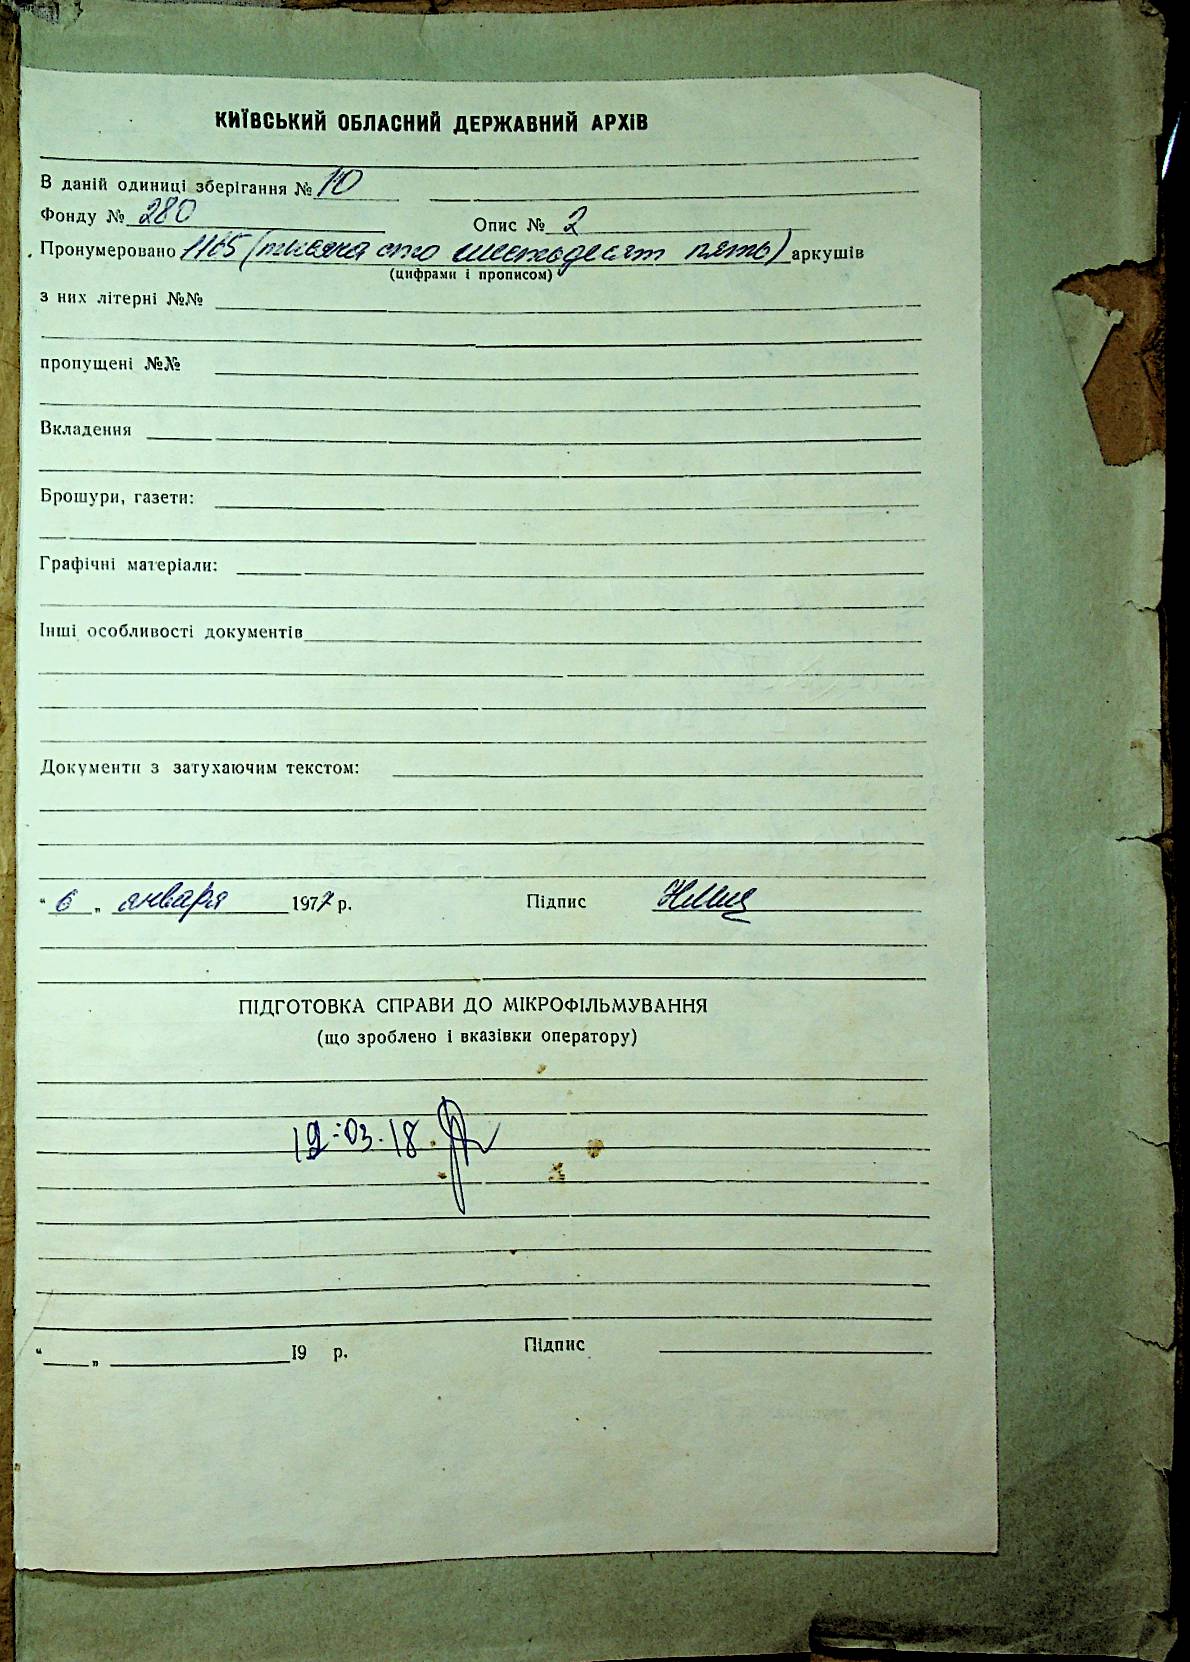 КИЇВСЬКИЙ ОБЛАСНИЙ ДЕРЖАВНИЙ АРХІВ
В даній одиниці зберігання № 10
Фонду № 280 Опис № 2
Пронумеровано 1165 (тысяча сто шестьдесят пять) аркушів
(цифрами і прописом)
з них літерні №№
пропущені №№
Вкладення
Брошури, газети:
Графічні матеріали:
Інші особливості документів
Документи з затухаючим текстом:
"6" января 1977 р. Підпис
ПІДГОТОВКА СПРАВИ ДО МІКРОФІЛЬМУВАННЯ
(що зроблено і вказівки оператору)
12.03.18
" " 19 р. Підпис